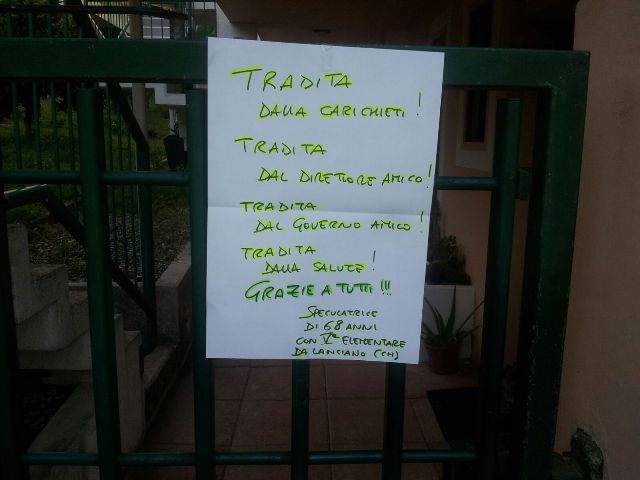 TRADITA
DALLA CARICHIETI!
TRADITA
DAL DIRETTORE AMICO!
TRADITA
DAL GOVERNO AMICO!
TRADITA
DALLA SALUTE!
GRAZIE A TUTTI!!!
SPECULATRICE
DI 68 ANNI
CON Vª ELEMENTARE
DA LANCIANO (CH)